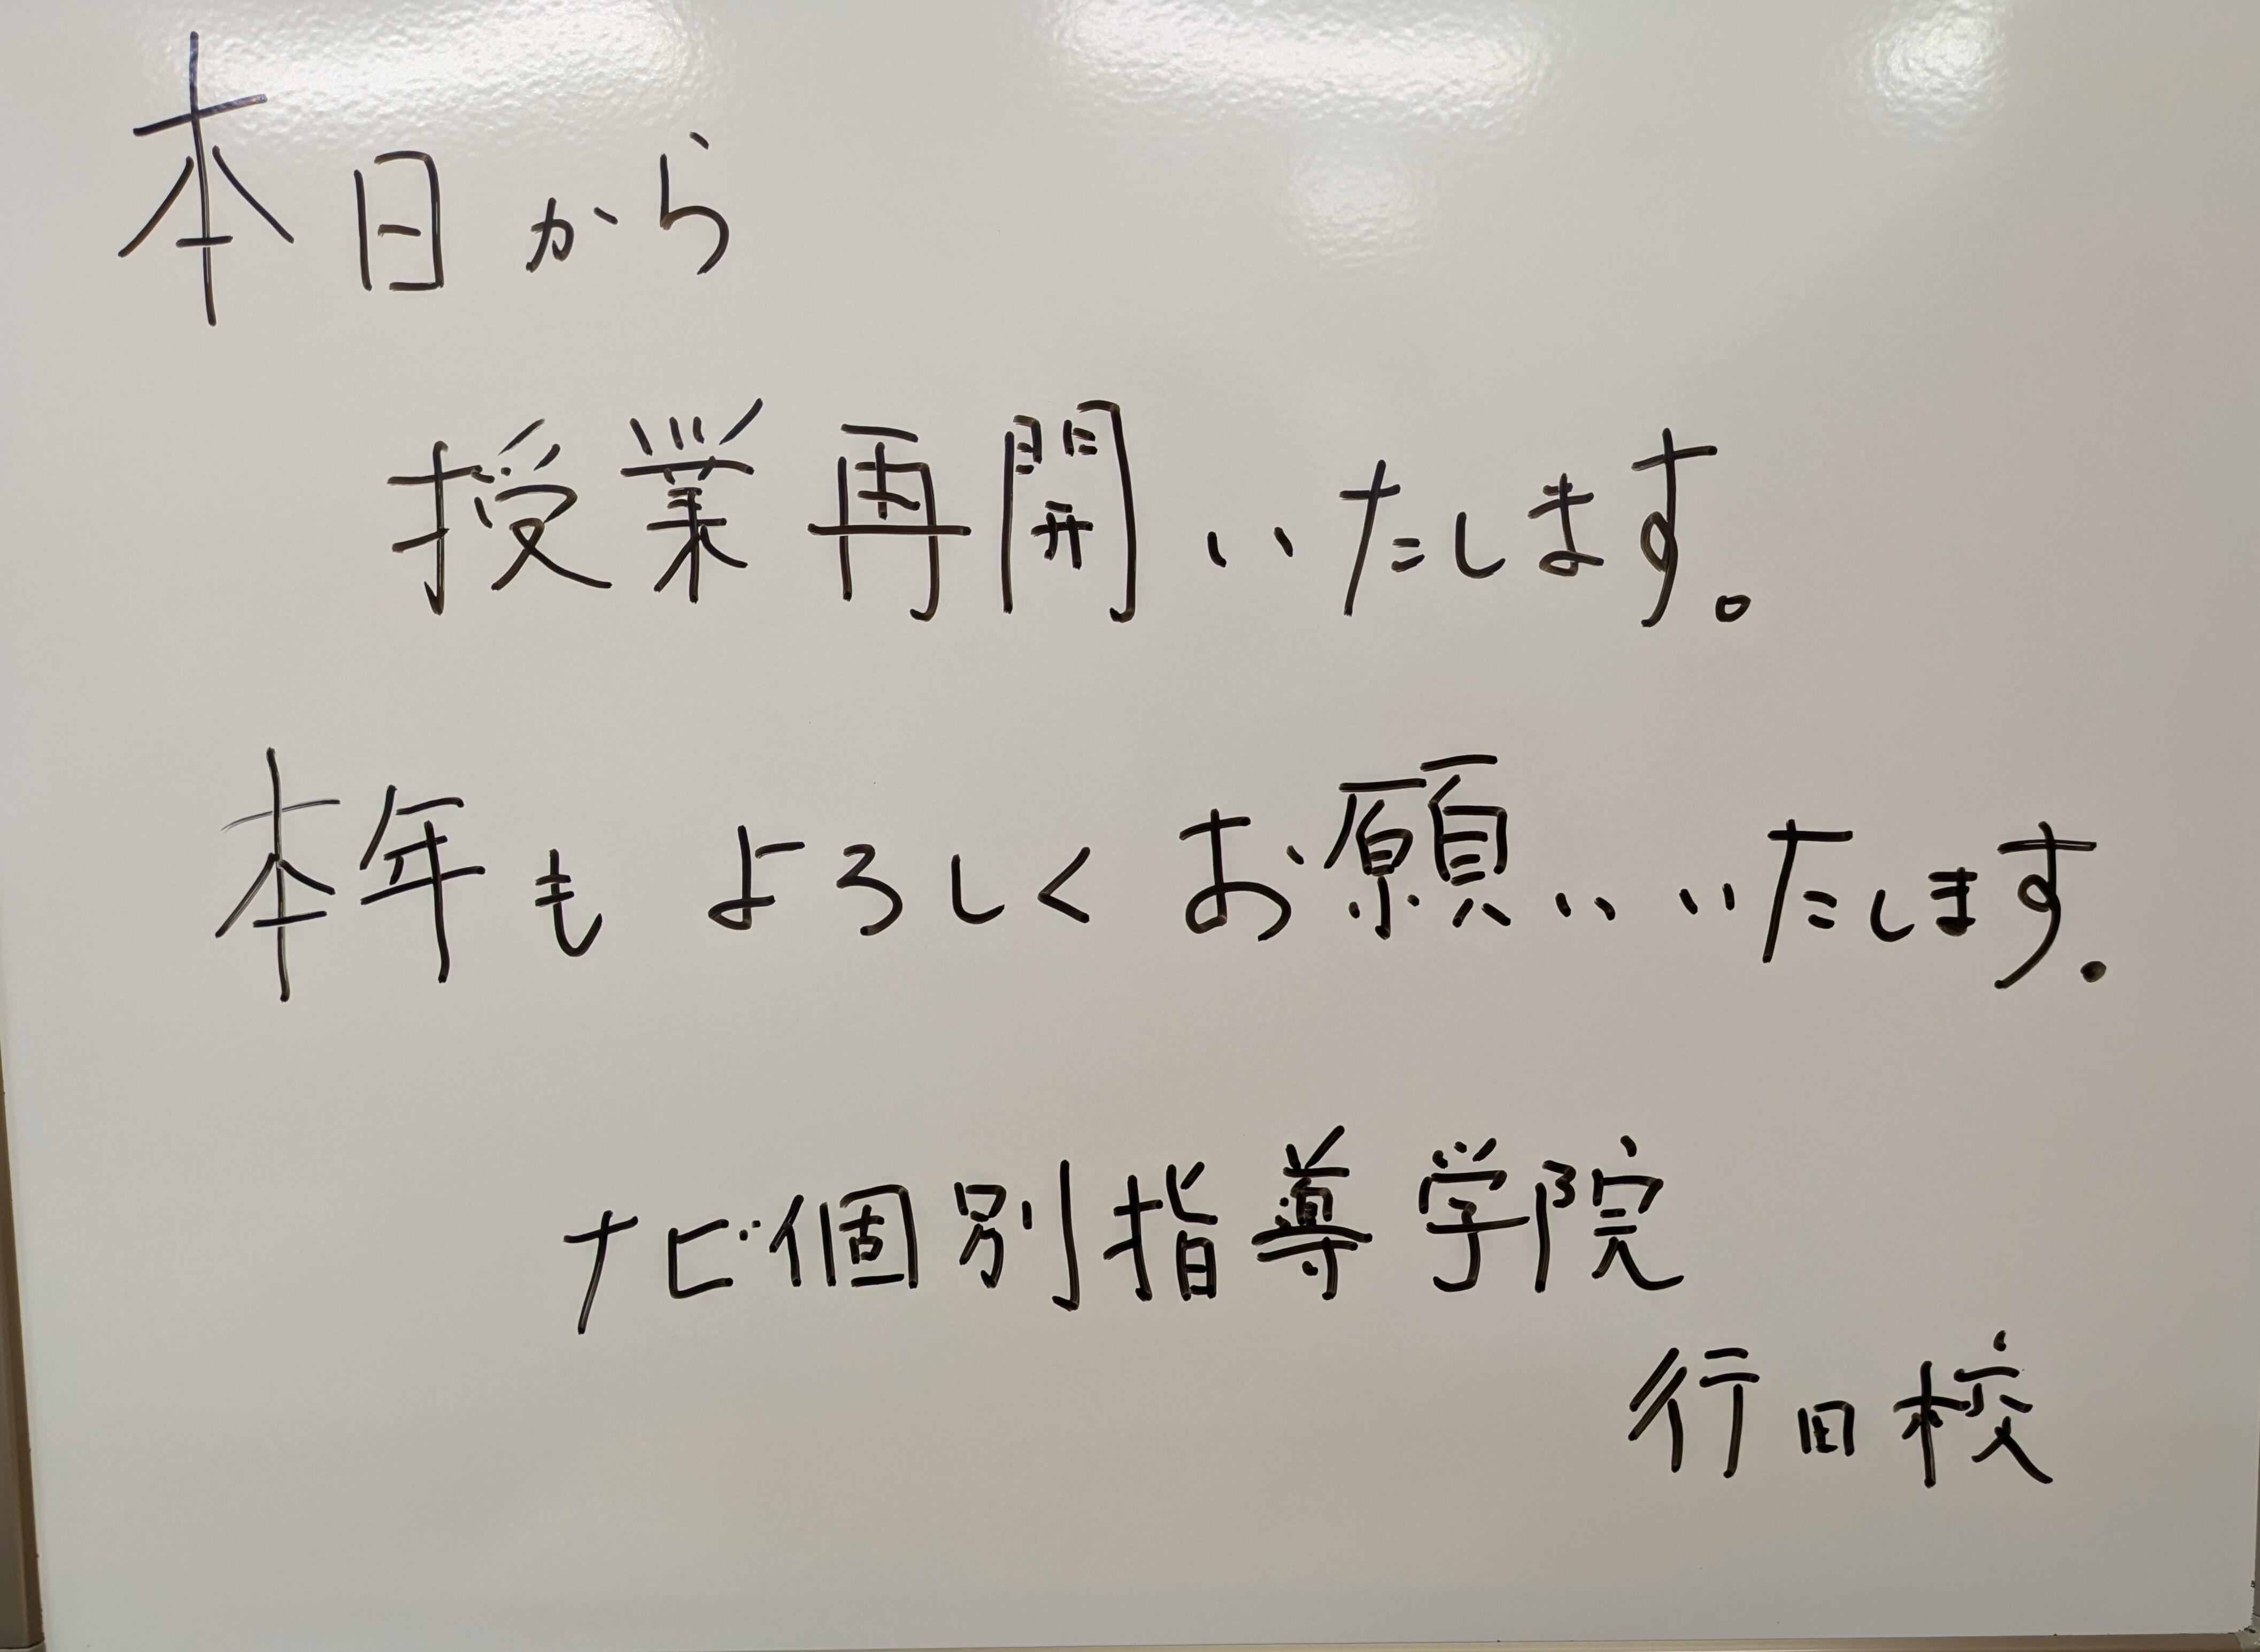 本日から
授業再開いたします。
本年もよろしくお願いいたします.
ナビ個別指導学院
行田校